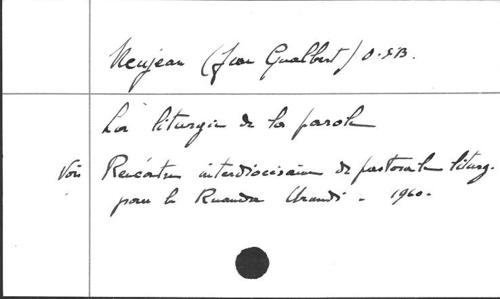 Neujean (Jean Gualbert) O.S.B.
La liturgie de la parole
Voir Rencontre interdiocésaine de pastorale liturg.
pour le Ruanda Urundi - 1960.